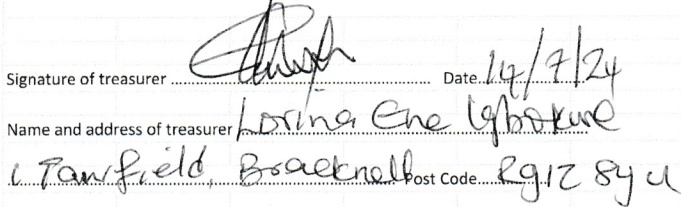 Signature of treasurer Date 14/7/24
Name and address of treasurer Lorina Ene Igbokwe
1 Fairfield, Bracknell Post Code Rg12 8yu